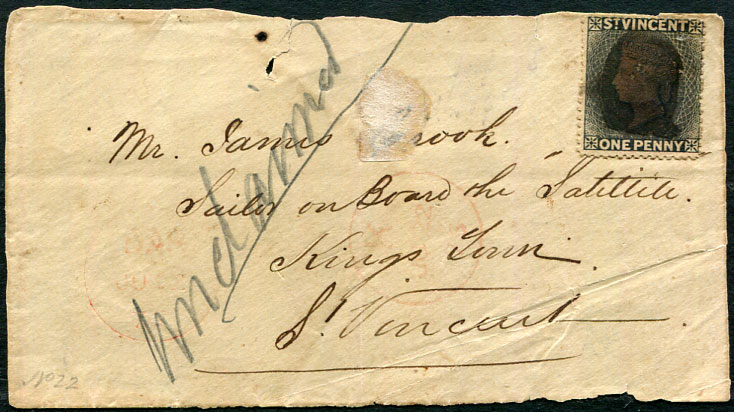 ST VINCENT
ONE PENNY
Mr. James rook.
Sailor on Board the Satillite.
Kings Town.
St Vincent
unclaimed
No 22